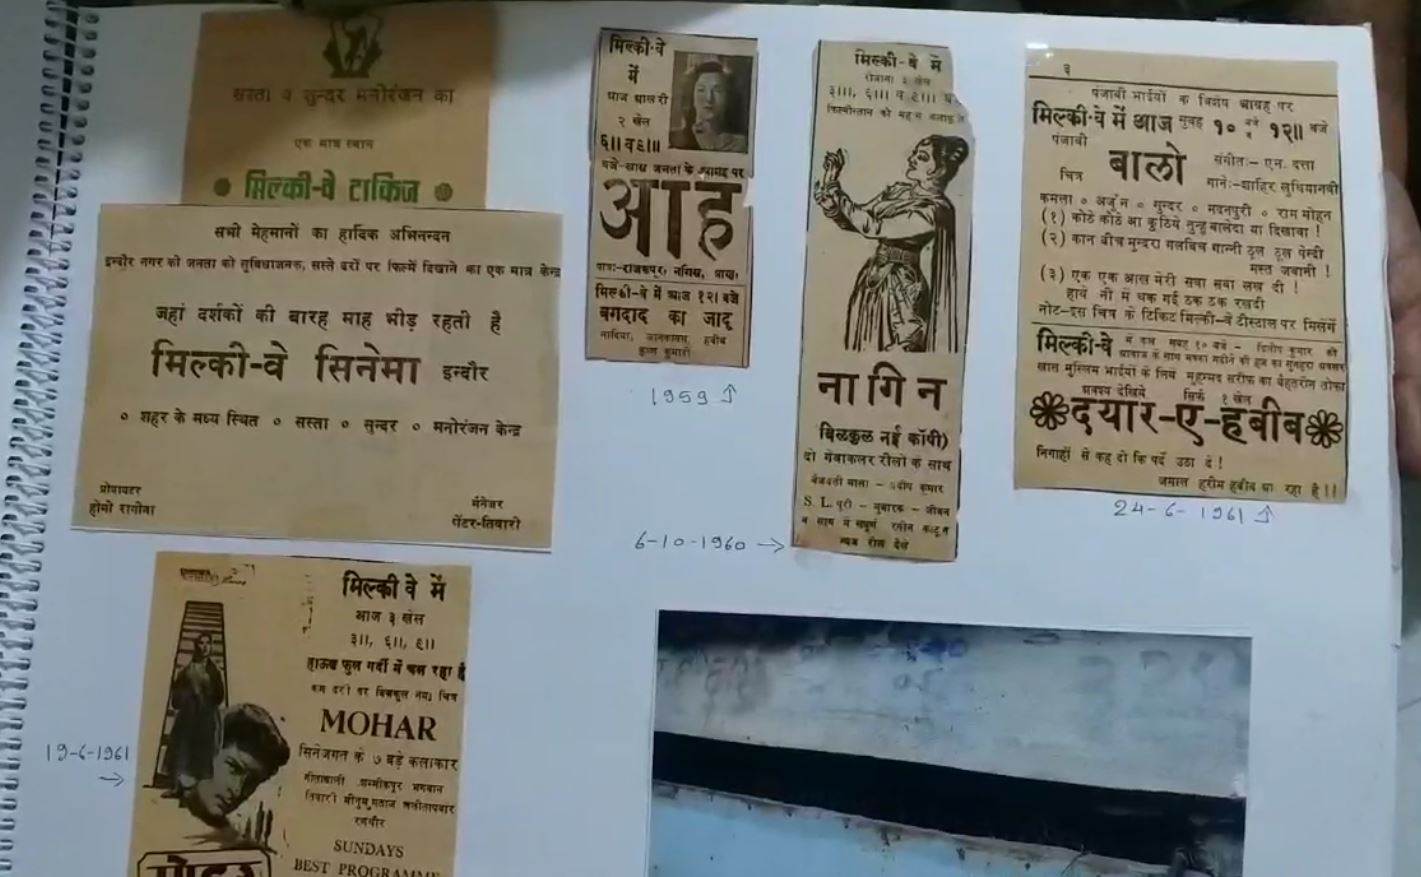 सस्ता व सुन्दर मनोरंजन का
एक मात्र स्थान
मिल्की-वे टाकिज
सभी मेहमानों का हार्दिक अभिनन्दन
इन्दौर नगर की जनता को सुविधाजनक, सस्ते दरों पर फिल्में दिखाने का एक मात्र केन्द्र
जहां दर्शकों की बारह माह भीड़ रहती है
मिल्की-वे सिनेमा इन्दौर
० शहर के मध्य स्थित ० सस्ता ० सुन्दर ० मनोरंजन केन्द्र
प्रोप्रायटर
होमी रागीना
मेनेजर
पेंटर-तिवारी
मिल्की-वे
में
आज आखरी
२ खेल
६॥ व ९॥
बजे-खास जनता के आग्रह पर
आह
पात्र:-राजकपूर, नर्गिस, प्राण।
मिल्की-वे में आज १२। बजे
बगदाद का जादू
नादिया, जानकावस, हबीब
कृष्ण कुमारी
1959
मिल्की-वे में
रोजाना ३ खेल
३॥, ६॥ व ९॥
नागिन
बिलकुल नई कॉपी)
दो गेवाकलर रीलों के साथ
बैजयंती माला - प्रदीप कुमार
S. L. पुरी - मुबारक - जीवन
6-10-1960
३
पंजाबी भाईयों के विशेष आग्रह पर
मिल्की-वे में आज सुबह १० बजे व १२॥ बजे
पंजाबी
चित्र
बालो
संगीत:- एन. दत्ता
गाने:-शाहिर लुधियानवी
कमला ० अर्जुन ० सुन्दर ० मदनपुरी ० राम मोहन
(१) कोठे कोठे आ कुठिये तुन्हु बालेदा या दिखावा !
(२) कान बीच मुन्दरा गलबिच गान्नी ठूल ठूल पेन्दी
मस्त जवानी !
(३) एक एक आख मेरी सवा सवा लख दी !
हाये नी मैं थक गई ठक ठक रखदी
नोट-इस चित्र के टिकिट मिल्की-वे टीस्टाल पर मिलेंगे
मिल्की-वे में कल सुबह १० बजे - दिलीप कुमार की
आवाज के साथ मक्का मदीने की हज का सुनहरा अवसर
खास मुस्लिम भाईयों के लिये मुहम्मद सरीफ का बेहतरीन तोफा
अवश्य देखिये सिर्फ १ खेल
दयार-ए-हबीब
निगाहों से कह दो कि पर्दे उठा दे !
जमाल हरीम हबीब आ रहा है !!
24-6-1961
मिल्की वे में
आज ३ खेल
३॥, ६॥, ९॥
हाऊस फुल गर्दी में चल रहा है
कम दरों पर बिलकुल नया चित्र
MOHAR
सिनेजगत के ७ बड़े कलाकार
गीताबाली शम्मीकपूर भगवान
तिवारी मीनुमुमताज ललीतापवार
रणधीर
SUNDAYS
BEST PROGRAMME
मोहर
19-6-1961